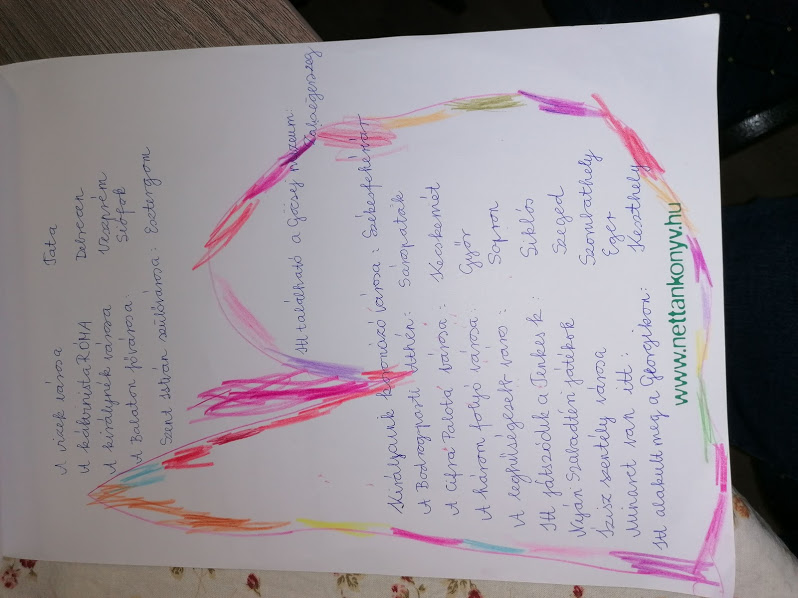 A vizek városa Tata
A kálvinista RÓMA Debrecen
A királynék városa Veszprém
A Balaton fővárosa: Siófok
Szent István szülővárosa: Esztergom
Itt található a Göcsej múzeum: Zalaegerszeg
Királyaink koronázó városa: Székesfehérvár
A Bodrogparti Athén: Sárospatak
A Cifra Palota városa: Kecskemét
A három folyó városa: Győr
A leghűségesebb város: Sopron
Itt játszódik a Tenkes k: Siklós
Nyári Szabadtéri játékok Szeged
Iszisz szentély városa Szombathely
Minaret van itt: Eger
Itt alakult meg a Georgikon: Keszthely
www.nettankonyv.hu